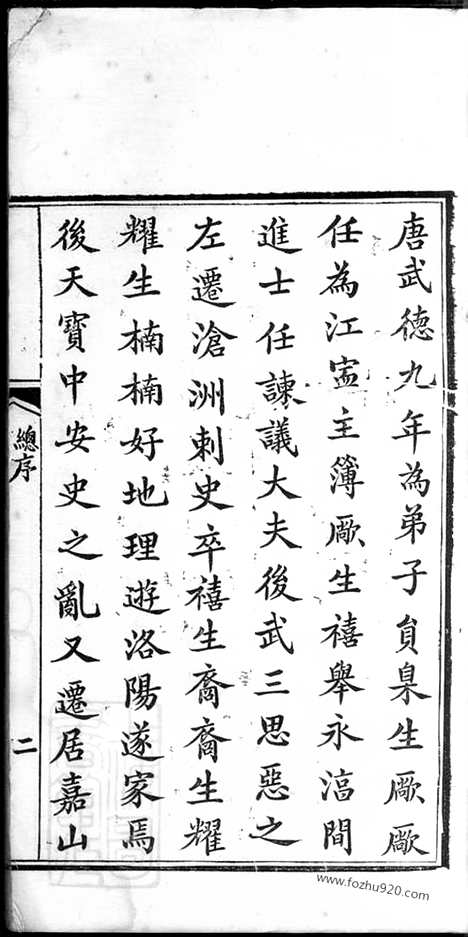 唐武德九年為弟子員臬生厰厰
任為江寍主簿厰生禧舉永湻間
進士任諫議大夫後武三思惡之
左遷滄洲刺史卒禧生裔裔生耀
耀生楠楠好地理遊洛陽遂家焉
後天寶中安史之亂又遷居嘉山
總序
二
www.fozhu920.com